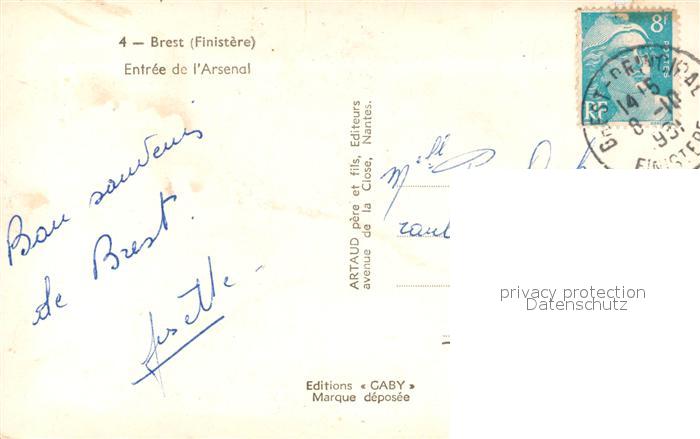 4 — Brest (Finistère)
Entrée de l'Arsenal
Bon souvenir
de Brest.
Josette
ARTAUD père et fils, Editeurs
avenue de la Close, Nantes.
Editions « GABY »
Marque déposée
8F
POSTES
RF
BREST-PRINCIPAL
14-15
8-10
FINISTERE
Melle
privacy protection
Datenschutz